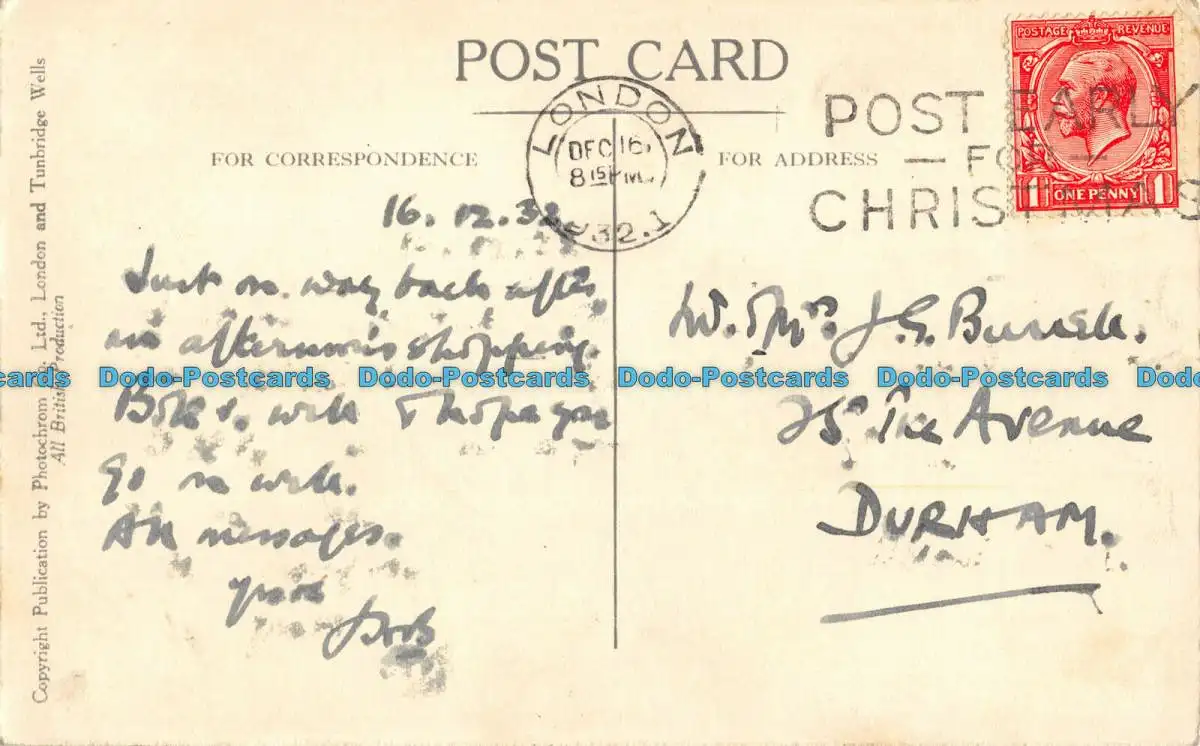 POST CARD
FOR CORRESPONDENCE
FOR ADDRESS
LONDON
DEC 16
8 15 PM
1932.1
POST EARLY
— FOR —
CHRISTMAS
POSTAGE REVENUE
1 ONE PENNY 1
Copyright Publication by Photochrom Co. Ltd., London and Tunbridge Wells
All British Production
16. 12. 32
Just on way back after
an afternoon's shopping.
Both v. well & hope you
go on well.
All messages.
yours
J. G.
25 The Avenue
DURHAM.
Dodo-Postcards Dodo-Postcards Dodo-Postcards Dodo-Postcards